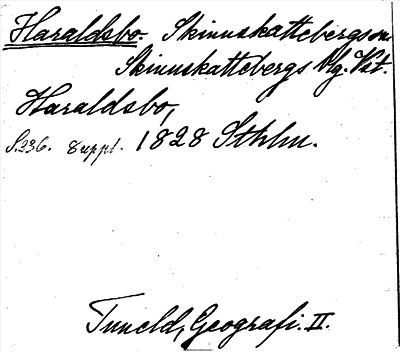 Haraldsbo. Skinnskattebergs sn.
Skinnskattebergs blg. Vst.
Haraldsbo,
S.236. 8 uppl. 1828 Sthlm.
Tuneld, Geografi. II.